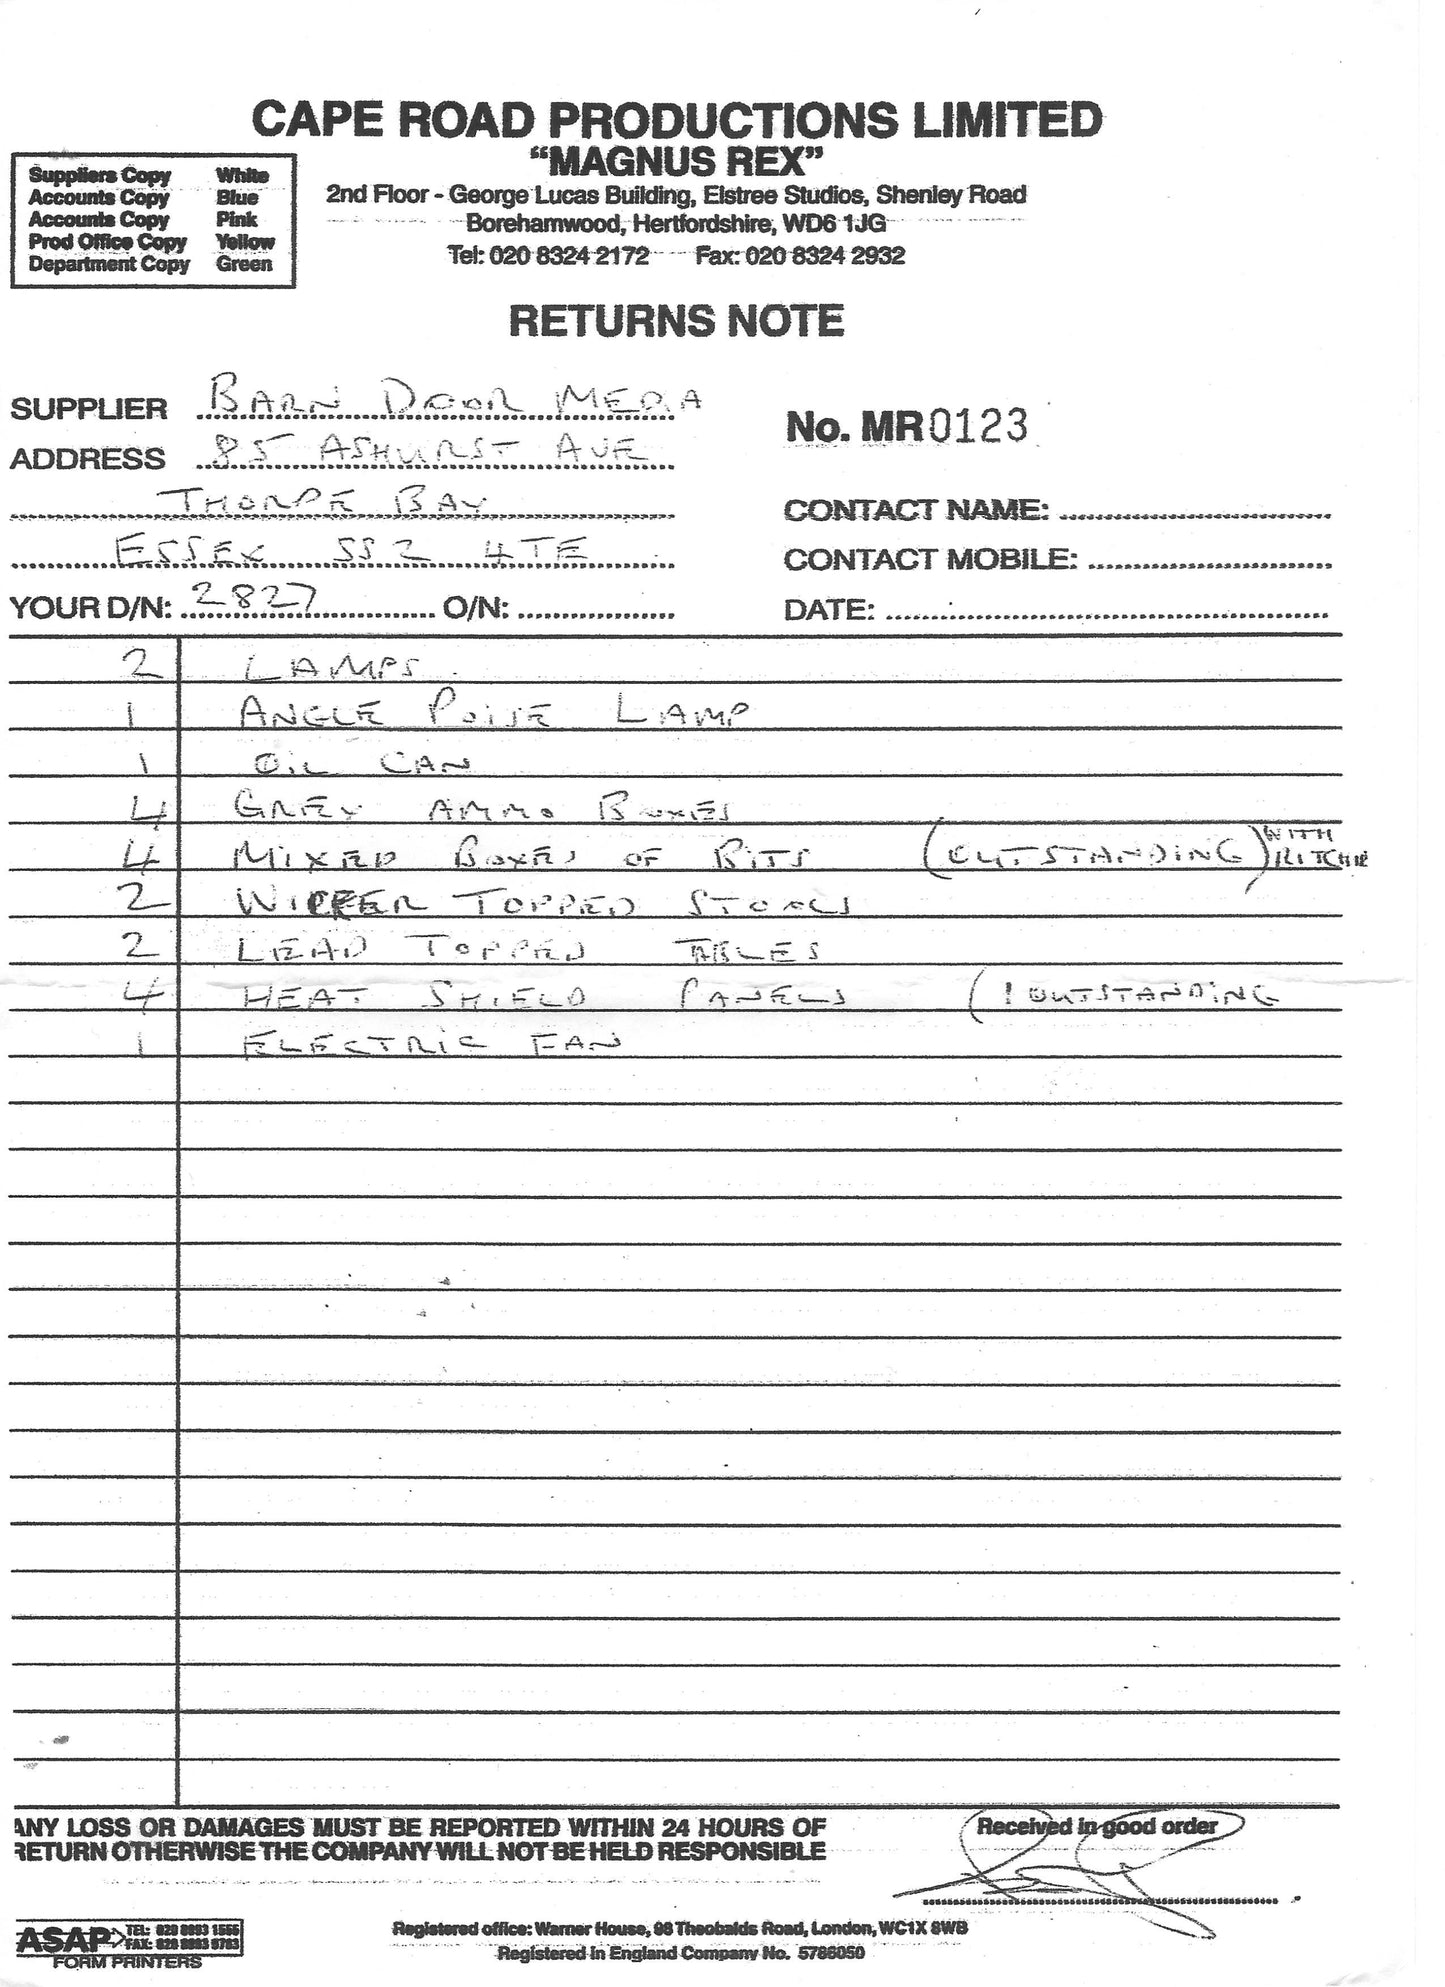 CAPE ROAD PRODUCTIONS LIMITED
“MAGNUS REX”
2nd Floor - George Lucas Building, Elstree Studios, Shenley Road
Borehamwood, Hertfordshire, WD6 1JG
Tel: 020 8324 2172 Fax: 020 8324 2932
Suppliers Copy White
Accounts Copy Blue
Accounts Copy Pink
Prod Office Copy Yellow
Department Copy Green
RETURNS NOTE
SUPPLIER BARN DOOR MEDIA
ADDRESS 85 ASHURST AVE
THORPE BAY
ESSEX SS2 4TE
YOUR D/N: 2827 O/N:
No. MR 0123
CONTACT NAME:
CONTACT MOBILE:
DATE:
2 LAMPS
1 ANGLE POISE LAMP
1 OIL CAN
4 GREY AMMO BOXES
4 MIXED BOXES OF BITS (OUTSTANDING) WITH RITCHIE
2 WICKER TOPPED STOOLS
2 LEAD TOPPED TABLES
4 HEAT SHIELD PANELS (1 OUTSTANDING
1 ELECTRIC FAN
ANY LOSS OR DAMAGES MUST BE REPORTED WITHIN 24 HOURS OF
RETURN OTHERWISE THE COMPANY WILL NOT BE HELD RESPONSIBLE
Received in good order
ASAP TEL: 020 8993 1566
FAX: 020 8993 5783
FORM PRINTERS
Registered office: Warner House, 98 Theobalds Road, London, WC1X 8WB
Registered in England Company No. 5786050